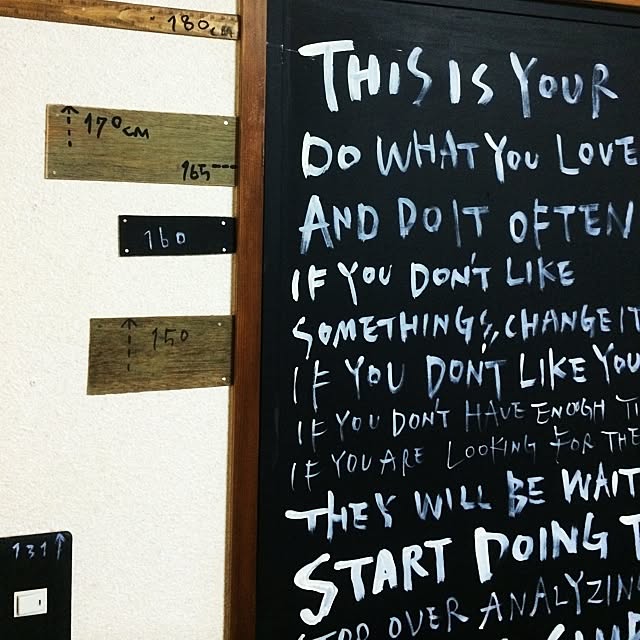 180cm
170cm
165---
160
150
131↑
THIS IS YOUR
DO WHAT YOU LOVE
AND DO IT OFTEN
IF YOU DON'T LIKE
SOMETHING, CHANGE IT
IF YOU DON'T LIKE YOU
IF YOU DON'T HAVE ENOUGH TI
IF YOU ARE LOOKING FOR THE
THEY WILL BE WAIT
START DOING T
STOP OVER ANALYZIN